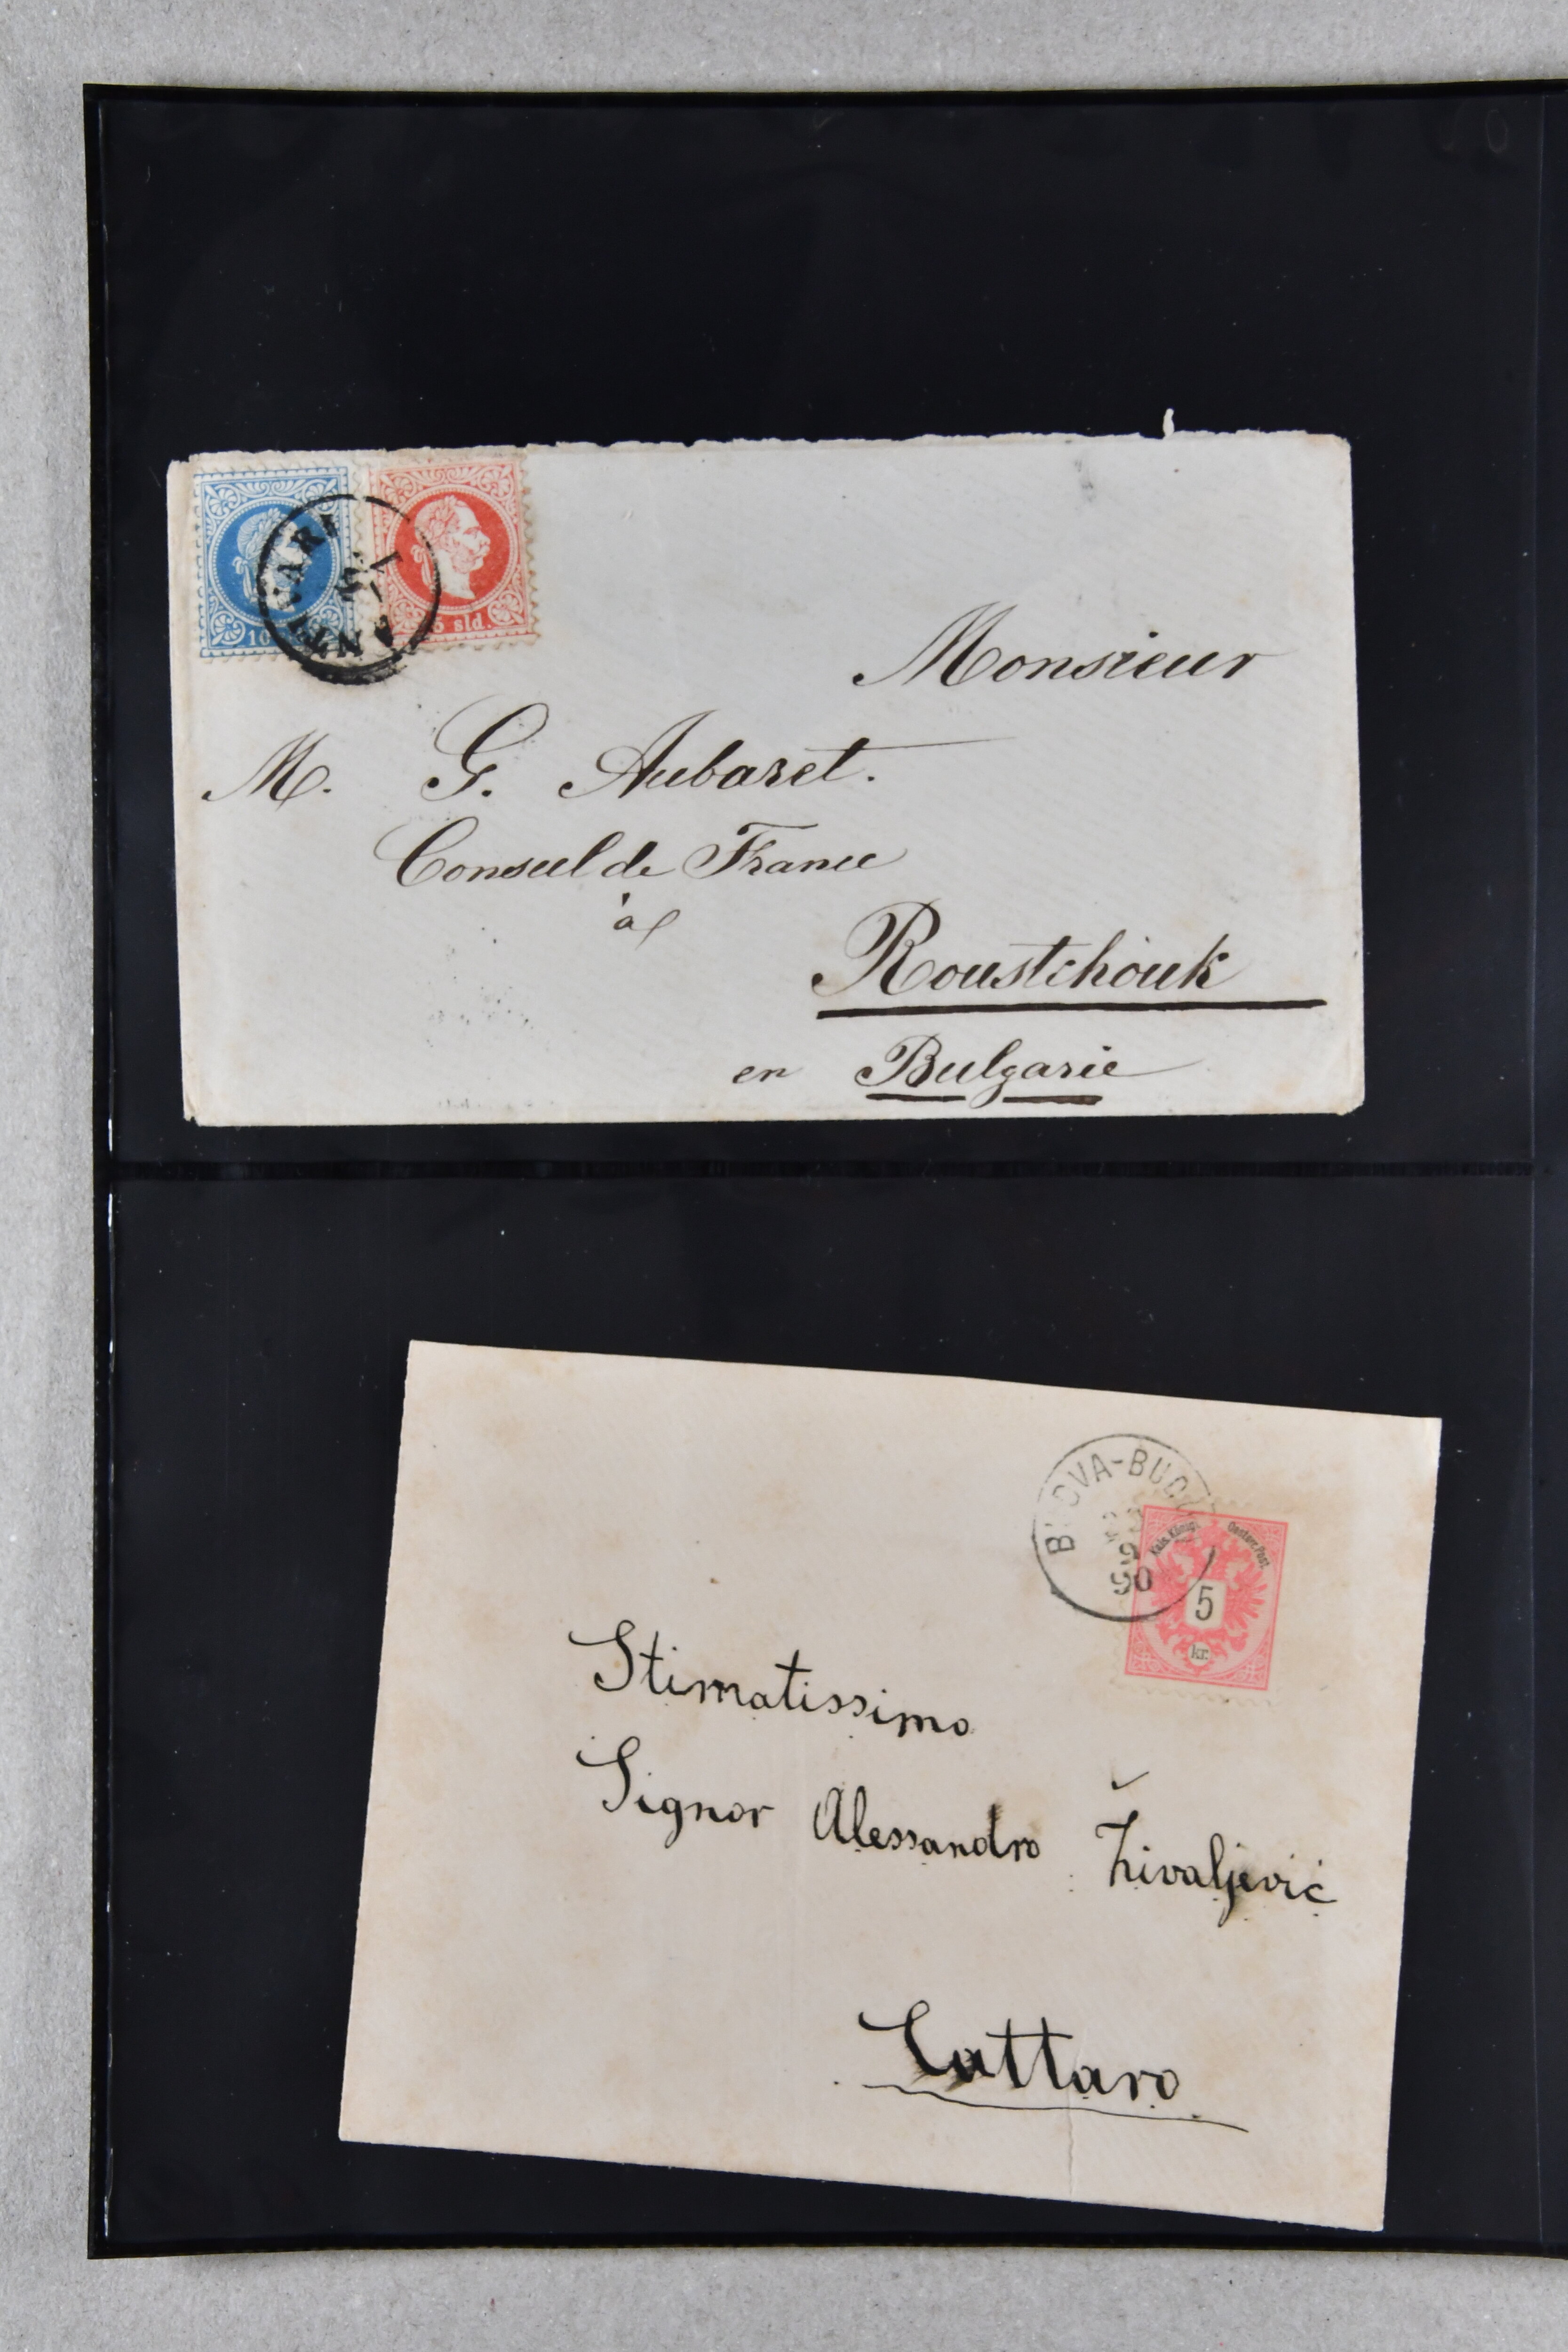 10
5 sld.
ANTIVARI
Monsieur
M. G. Aubaret.
Consul de France
à
Roustchouk
en Bulgarie
BUDOVA-BUDUA
9
90
Kais. Königl. Oesterr. Post.
5
kr.
Stimatissimo
Signor Alessandro Živaljević
Cattaro